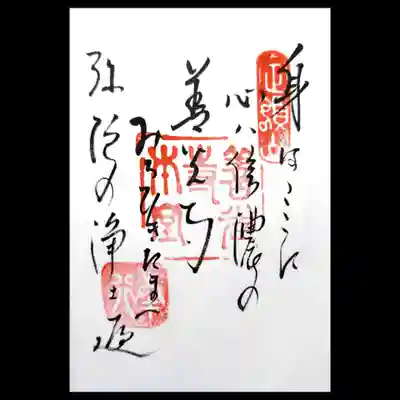 定額山
身はこゝに
心ハ信濃の
善光寺
みちびきたまへ
弥陀の浄土へ